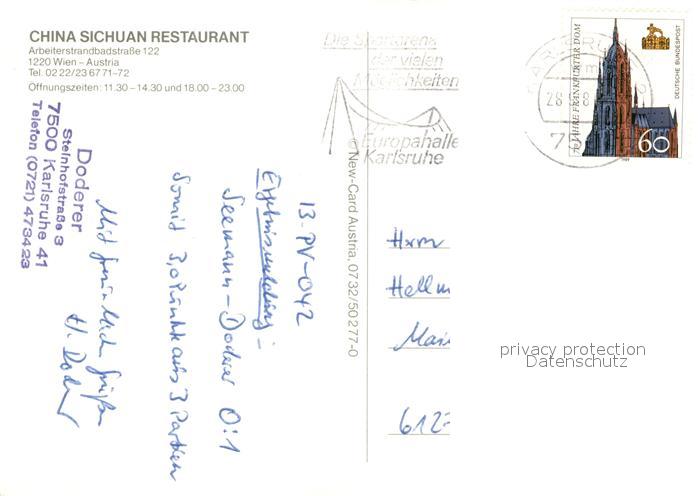 CHINA SICHUAN RESTAURANT
Arbeiterstrandbadstraße 122
1220 Wien – Austria
Tel. 02 22/23 67 71-72
Öffnungszeiten: 11.30 – 14.30 und 18.00 – 23.00
Doderer
Steinhofstraße 3
7500 Karlsruhe 41
Telefon (0721) 473423
13-PV-042
Ergebnismeldung:
Seemann – Doderer 0:1
Somit 3,0 Punkte aus 3 Partien
Mit freundlichen Grüßen
H. Doderer
© New-Card Austria, 0732/50 277-0
Die Sportarena
der vielen
Möglichkeiten
Europahalle
Karlsruhe
KARLSRUHE
28
JAHRE FRANKFURTER DOM
DEUTSCHE BUNDESPOST
60
1989
Herrn
Hellm
612
privacy protection
Datenschutz